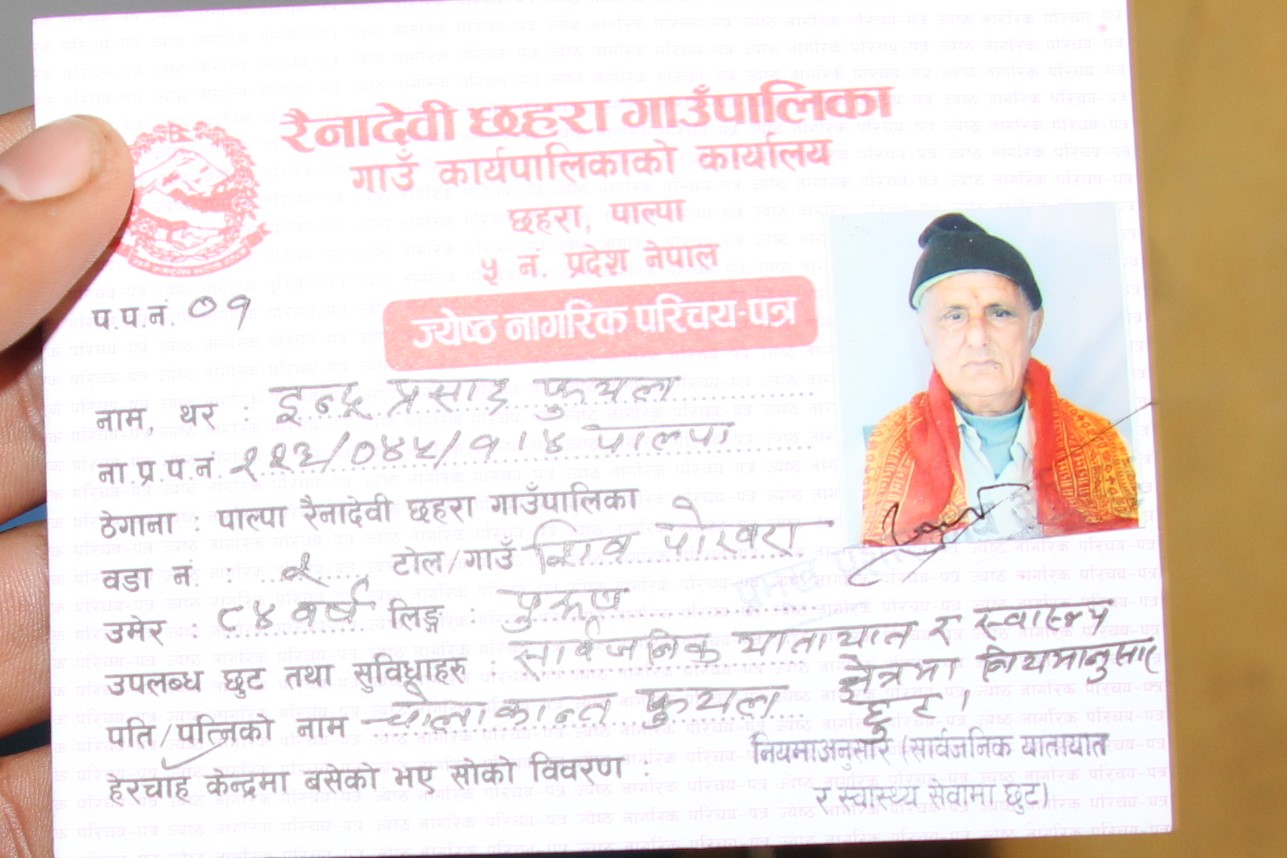 रैनादेवी छहरा गाउँपालिका
गाउँ कार्यपालिकाको कार्यालय
छहरा, पाल्पा
५ नं. प्रदेश नेपाल
प.प.नं. ०१
ज्येष्ठ नागरिक परिचय-पत्र
नाम, थर : इन्द्र प्रसाद फुयल
ना.प्र.प.नं २१३/०४५/९१४ पाल्पा
ठेगाना : पाल्पा रैनादेवी छहरा गाउँपालिका
वडा नं : २ टोल/गाउँ शिव पोखरा
उमेर : ८४ वर्ष लिङ्ग : पुरूष
उपलब्ध छुट तथा सुविधाहरु : सार्वजनिक यातायात र स्वास्थ्य
क्षेत्रमा नियमानुसार
छुट।
पति/पत्निको नाम फुयल
नियमाअनुसार (सार्वजनिक यातायात
र स्वास्थ्य सेवामा छुट)
हेरचाह केन्द्रमा बसेको भए सोको विवरण :